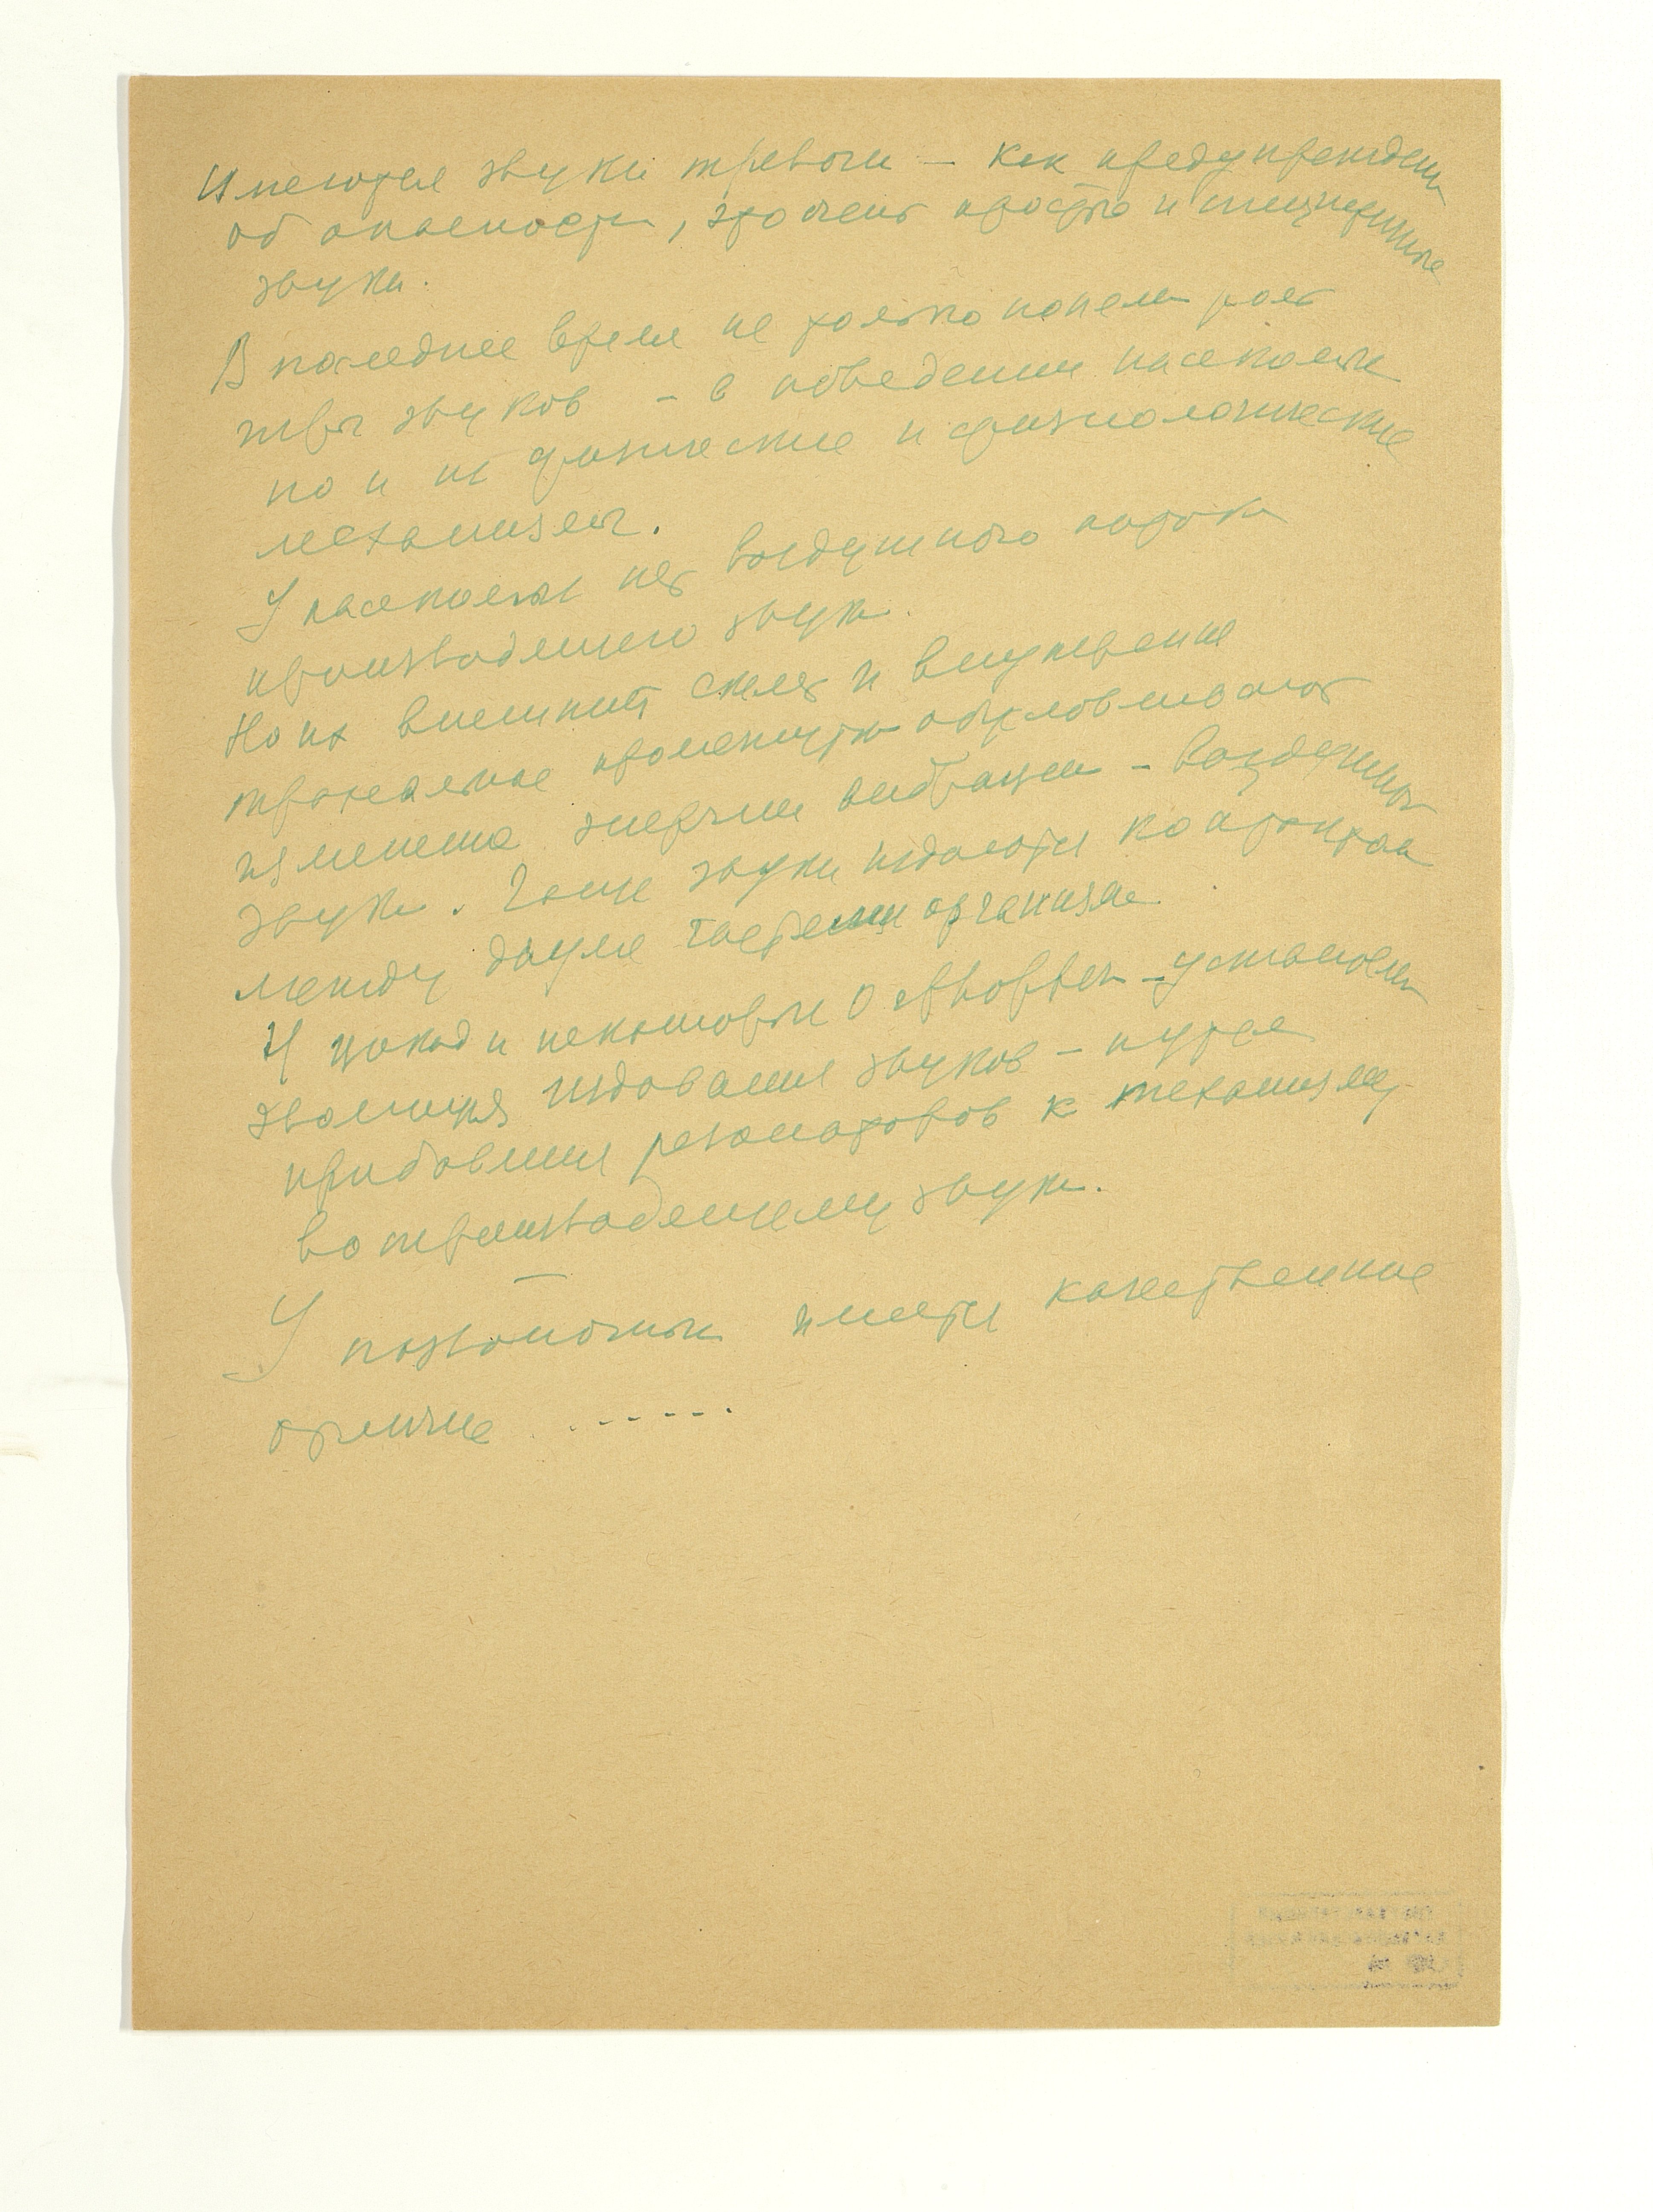 Имеются звуки тревоги — как предупрежден
об опасности, это очень просто и специфичные
звуки.
В последнее время не только поняли роль
звуков — в поведении насекомых
но и их физические и физиологические
механизмы.
У насекомых нет воздушного потока
производящего звук.
Но их внешний скелет и внутрение
трахеальные промежутки обусловливают
изменение энергии вибрации — воздушных
звуки. Чаще звуки издаются контактом
между двумя частями организма.
У цикад и некоторых Orthopter — установлен
эволюция издавания звуков — путем
прибавления резонаторов к механизму
воспроизводящему звук.
У позвоночных имеется качественные
отличие . - - - - - .